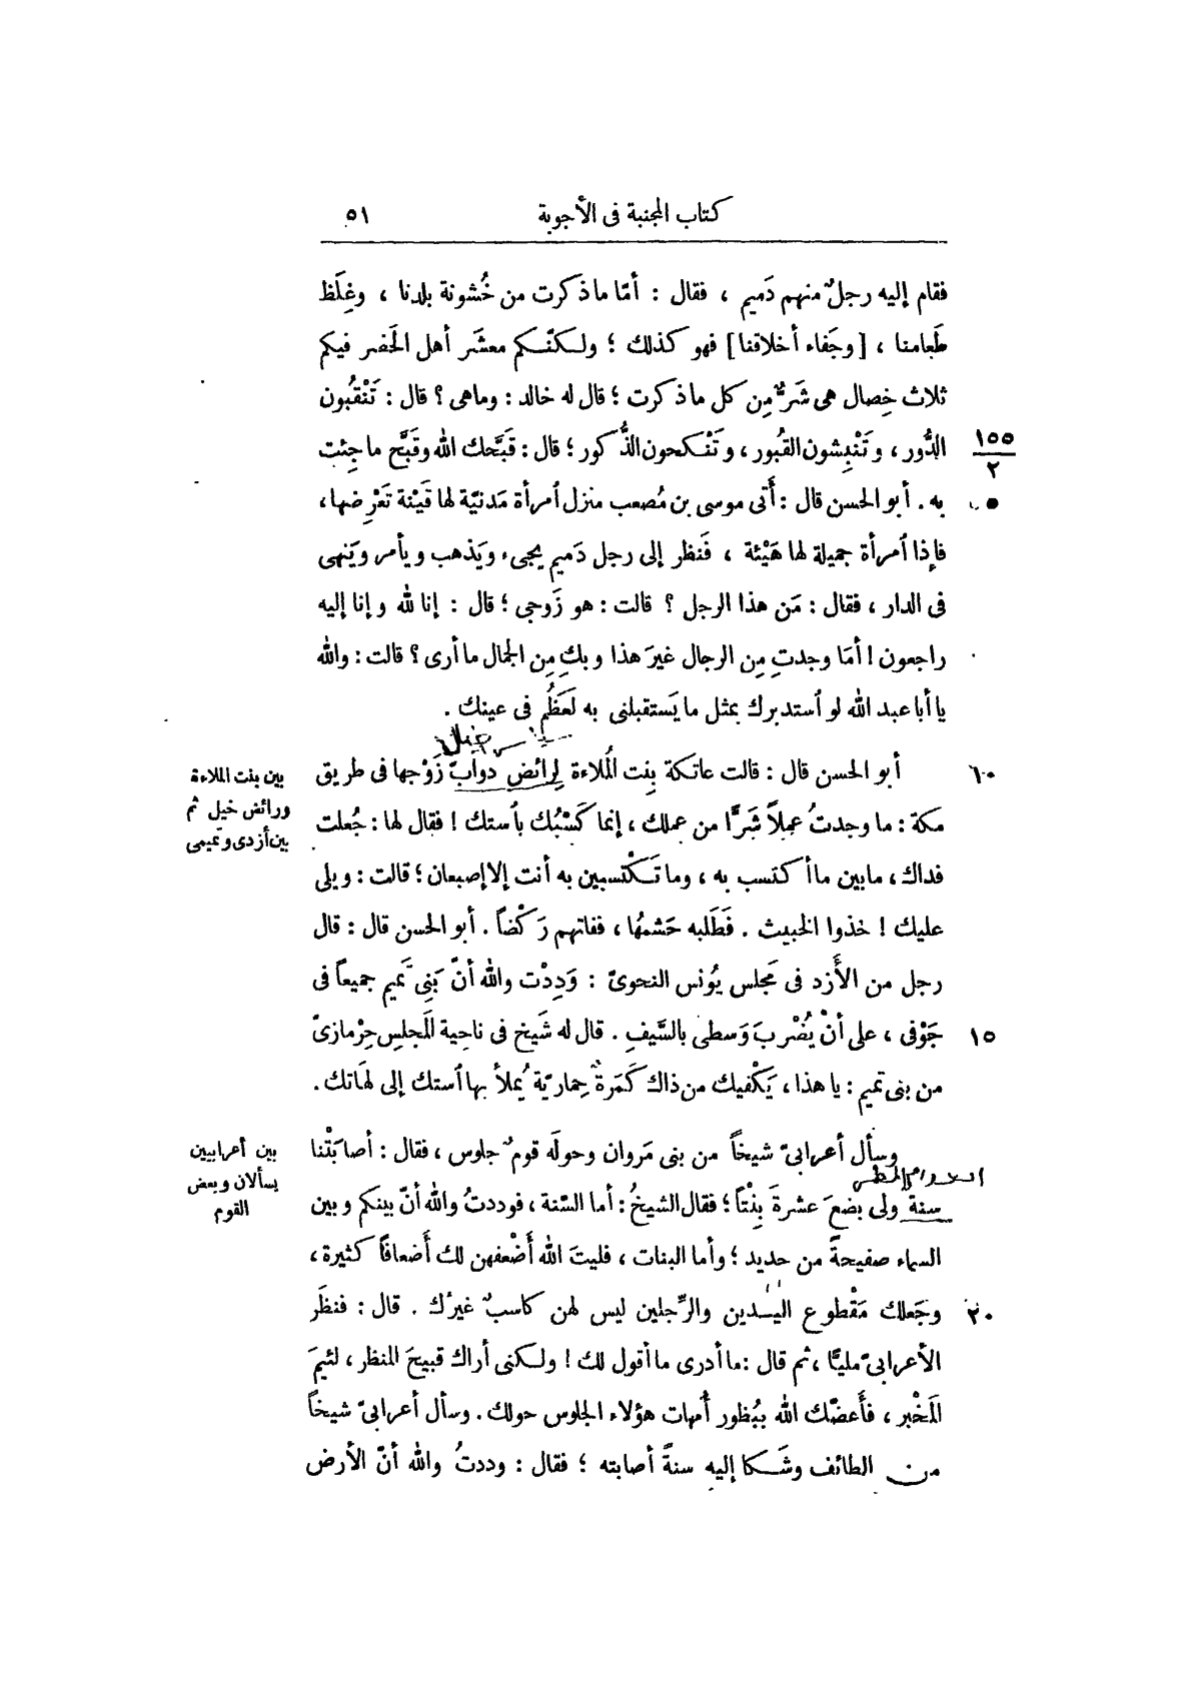 كتاب المجنبة فى الأجوبة ٥١
فقام إليه رجلٌ منهم دَميم ، فقال : أمّا ما ذكرت من خُشونة بلدنا ، وغِلَظ
طَعامنا ، [وجَفاء أخلاقنا] فهو كذلك ؛ ولكنّكم معشَر أهل الحَضر فيكم
ثلاث خِصال هى شَرٌّ مِن كل ما ذكرت ؛ قال له خالد : وماهى ؟ قال : تَنْقُبون
الدُّور ، وتَنْبِشون القُبور ، وتَنْكحون الذُّكور ؛ قال : قَبَّحك الله وقَبَّح ما جِئت
١٥٥
٢
به . أبو الحسن قال : أَتى موسى بن مُصعب منزل ٱمرأة مَدنيّة لها قَيْنة تَعْرِضها ،
٥
فإذا ٱمرأة جميلة لها هَيْئة ، فَنظر إلى رجل دَميم يجىء ويَذهب ويأمر ويَنهى
فى الدار ، فقال : مَن هذا الرجل ؟ قالت : هو زَوجى ؛ قال : إنا لله وإنا إليه
راجعون ! أمَا وجدتِ مِن الرجال غيرَ هذا وبكِ مِن الجمال ما أرى ؟ قالت : والله
يا أبا عبد الله لو ٱستدبرك بمثل ما يَستقبلنى به لَعَظُم فى عينك .
أبو الحسن قال : قالت عاتكة بِنت المُلاءة لِرائض دوابّ زَوْجها فى طريق
١٠
بين بنت الملاءة
ورائض خيل ثم
بين أزدى وتميمى
مكة : ما وجدتُ عملاً شَرًّا من عملك ، إنما كَسْبُك بٱستك ! فقال لها : جُعلت
فداك ، مابين ما أكتسب به ، وما تَكْتسبين به أنت إلا إصبعان ؛ قالت : ويلى
عليك ! خذوا الخبيث . فَطَلبه حَشمُها ، ففاتهم رَكْضاً . أبو الحسن قال : قال
رجل من الأَزد فى مَجلس يُونس النحوىّ : وَدِدْت والله أنّ بَنِى تَميم جميعاً فى
جَوْفى ، على أنْ يُضْربَ وَسطى بالسَّيف . قال له شَيخ فى ناحية المَجلِس حِرْمازىّ
١٥
من بنى تميم : يا هذا ، يَكْفيك من ذاك كَمَرةٌ حِماريّة يُملأ بها ٱستك إلى لهَاتك .
وسأل أعرابىّ شيخاً من بنى مَروان وحولَه قومٌ جلوس ، فقال : أصابَتْنا
بين أعرابيين
يسألان وبعض
القوم
سنة ولى بضعَ عشرةَ بِنْتاً ؛ فقال الشيخُ : أما السّنة ، فوددتُ والله أنّ بينكم وبين
السماء صفيحةً من حديد ؛ وأما البنات ، فليتَ الله أَضْعفهن لك أَضعافاً كثيرة ،
وجَعلك مَقْطوع اليدين والرِّجلين ليس لهن كاسبٌ غيرُك . قال : فنظَر
٢٠
الأعرابىّ مليًّا ، ثم قال : ما أدرى ما أقول لك ! ولكنى أراك قبيحَ المنظر ، لئيمَ
المَخْبر ، فأَعضّك الله ببُظور أُمهات هؤلاء الجلوس حولك . وسأل أعرابىّ شيخاً
من الطائف وشَكا إليه سنةً أصابته ؛ فقال : وددتُ والله أنّ الأرض